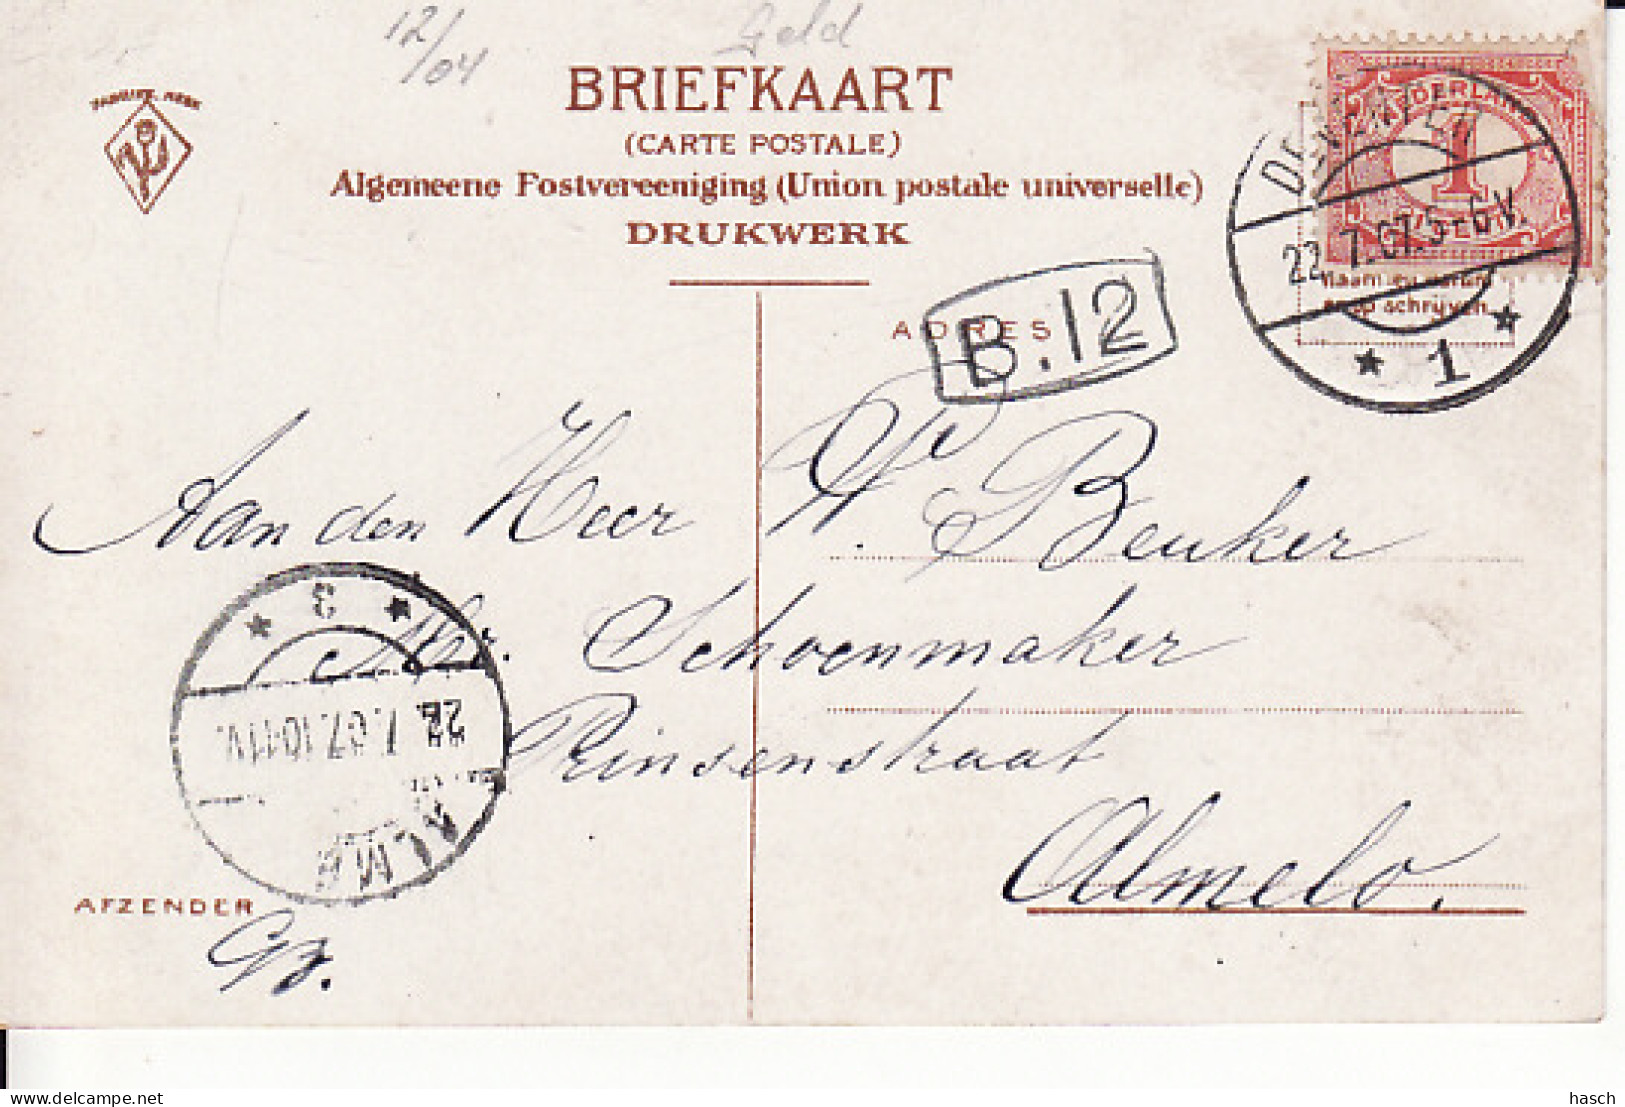 12/04
Geld
FABRIEK MERK
BRIEFKAART
(CARTE POSTALE)
Algemeene Postvereeniging (Union postale universelle)
DRUKWERK
NEDERLAND
1
DEVENTER
22. 7. 07. 5-6 V.
1
op schrijven.
ADRES
B. 12
Aan den Heer W. Beuker
Mr. Schoenmaker
Prinsenstraat
Almelo.
3
22. 7. 07. 10-11 V.
ALM
AFZENDER
hasch